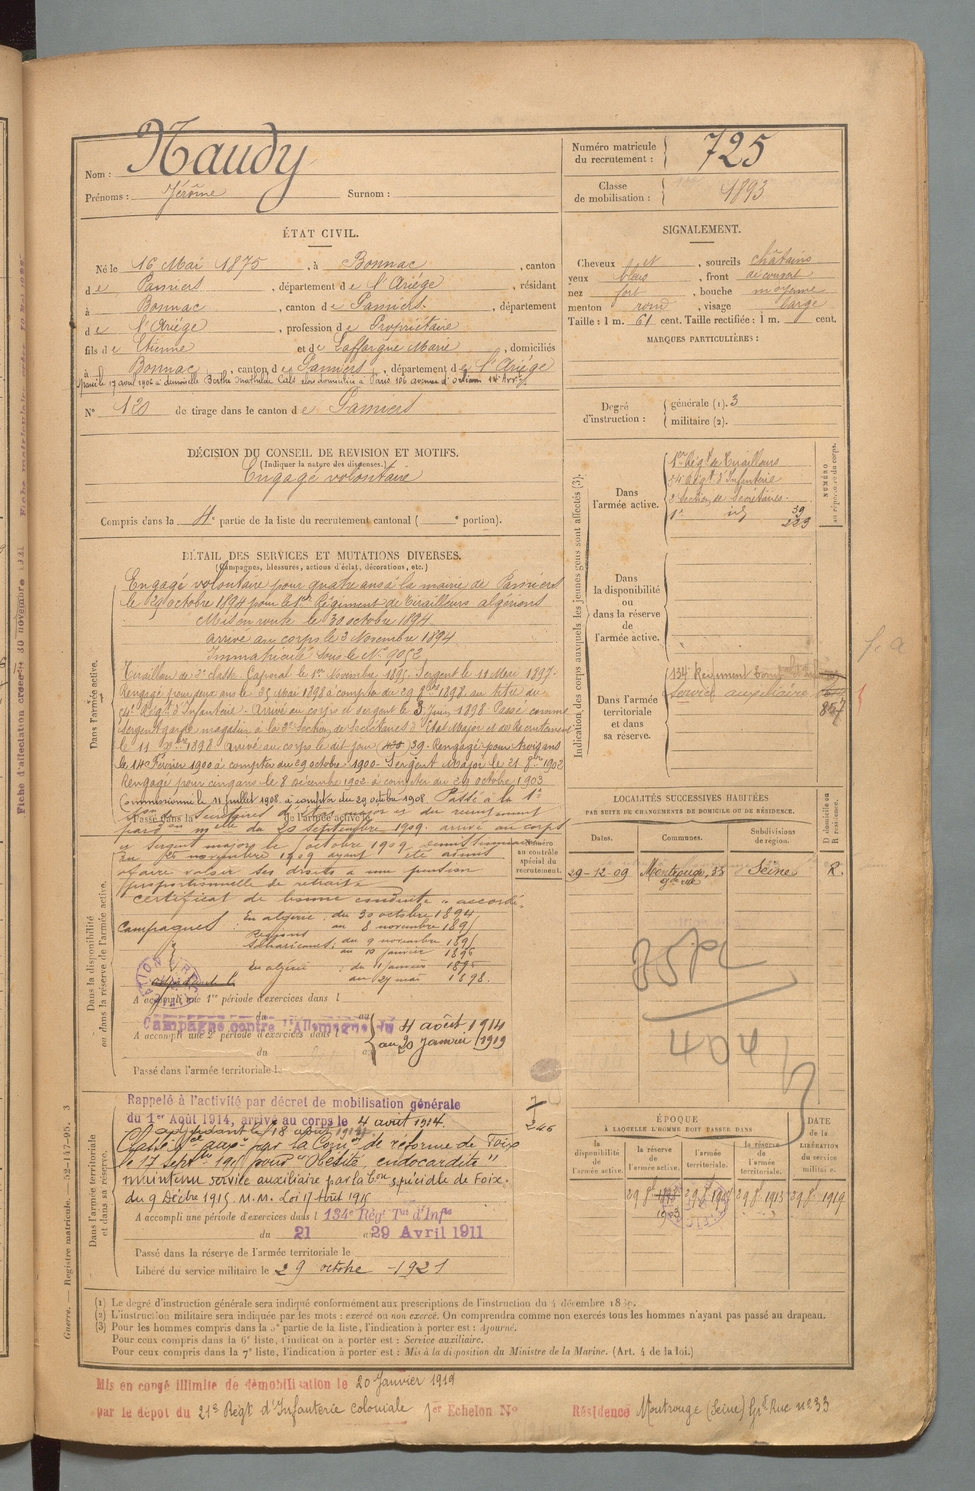 Nom : Naudy
Prénoms : Jérôme Surnom :
Numéro matricule du recrutement : 725
Classe de mobilisation : 1893
ÉTAT CIVIL.
Né le 16 Mai 1875, à Bonnac, canton
de Pamiers, département de l'Ariège, résidant
à Bonnac, canton de Pamiers, département
de l'Ariège, profession de Propriétaire
fils de Etienne et de Laffargue Marie, domiciliés
à Bonnac, canton de Pamiers, département de l'Ariège
N° 120 de tirage dans le canton de Pamiers
SIGNALEMENT.
Cheveux et, sourcils châtains
yeux bleus, front découvert
nez fort, bouche moyenne
menton rond, visage large
Taille : 1 m. 61 cent. Taille rectifiée : 1 m. cent.
MARQUES PARTICULIÈRES :
Degré d'instruction : générale (1). 3
militaire (2).
DÉCISION DU CONSEIL DE REVISION ET MOTIFS.
(Indiquer la nature des dispenses.)
Engagé volontaire
Compris dans la 4e partie de la liste du recrutement cantonal ( e portion).
DÉTAIL DES SERVICES ET MUTATIONS DIVERSES.
(Campagnes, blessures, actions d'éclat, décorations, etc.)
Dans l'armée active.
Engagé volontaire pour quatre ans à la mairie de Pamiers
le 29 octobre 1894 pour le 1er Régiment de Tirailleurs algériens
Mis en route le 30 octobre 1894
arrivé au corps le 3 Novembre 1894
Immatriculé sous le N° 9052
Tirailleur de 2e classe Caporal le 1er Novembre 1895. Sergent le 11 Mai 1897.
Rengagé pour deux ans le 25 Mai 1898 à compter du 29 8bre 1898 au titre du
Régt d'Infanterie. Arrivé au corps et sergent le 3 Juin 1898. Passé comme
Sergent garde magasin à la Section de Secrétaires d'Etat Major et de Recrutement
le 11 1898 arrivé au corps le dit jour 39. Rengagé pour trois ans
le 14 Février 1900 à compter du 29 octobre 1900. Sergent Major le 21 8bre 1902
Rengagé pour cinq ans le 8 décembre 1902 à compter du 29 octobre 1903
Commissionné le 11 juillet 1908 à compter du 29 octobre 1908. Passé à la 1e
Passé dans la de l'armée active le
du 20 septembre 1909. arrivé au corps
et Sergent major le octobre 1909
novembre 1909 ayant été admis
à faire valoir ses droits à une pension
proportionnelle de retraite
certificat de bonne conduite "accordé"
Campagnes : En algérie : du 30 octobre 1894
au 8 novembre 1895
du 9 novembre 1895
au 10 janvier 1896
En algérie : du 11 janvier 1896
au 27 mai 1898.
Dans la disponibilité ou dans la réserve de l'armée active.
A accompli une 1re période d'exercices dans l
du au
Campagne contre l'Allemagne du 4 août 1914
au 20 janvier 1919
A accompli une 2e période d'exercices dans l
du au
Passé dans l'armée territoriale l
Dans l'armée territoriale et dans sa réserve.
Rappelé à l'activité par décret de mobilisation générale
du 1er Août 1914, arrivé au corps le 4 août 1914.
adjudant le 18 août 1914
Classé Sce auxre par la Comon de réforme de Foix
le 17 Septbre 1915 pour "Obésité, endocardite"
maintenu service auxiliaire par la Con spéciale de Foix
du 9 Décbre 1915. M.M. Loi 17 Août 1915
A accompli une période d'exercices dans l 134e Régt Tal d'Infie
du 21 au 29 Avril 1911
Passé dans la réserve de l'armée territoriale le
Libéré du service militaire le 29 octobre 1921
Indication des corps auxquels les jeunes gens sont affectés (3).
NUMÉRO au répertoire du corps.
Dans l'armée active.
1er Régt de Tirailleurs
Régt d'Infanterie
Section de Secrétaires
1e id 39
223
Dans la disponibilité ou dans la réserve de l'armée active.
Dans l'armée territoriale et dans sa réserve.
134e Régiment territorial
Service auxiliaire
857
LOCALITÉS SUCCESSIVES HABITÉES
PAR SUITE DE CHANGEMENTS DE DOMICILE OU DE RÉSIDENCE.
Dates. Communes. Subdivisions de région. D domicile ou R résidence.
Numéro au contrôle spécial du recrutement.
29-12-09 Montrouge, 33 gde rue Seine R.
404
ÉPOQUE
À LAQUELLE L'HOMME DOIT PASSER DANS
la disponibilité de l'armée active. la réserve de l'armée active. l'armée territoriale. la réserve de l'armée territoriale. DATE de la LIBÉRATION du service militaire.
29 8bre 29 8bre 29 8bre 1913 29 8bre 1919
(1) Le degré d'instruction générale sera indiqué conformément aux prescriptions de l'instruction du 4 décembre
(2) L'instruction militaire sera indiquée par les mots : exercé ou non exercé. On comprendra comme non exercés tous les hommes n'ayant pas passé au drapeau.
(3) Pour les hommes compris dans la 5e partie de la liste, l'indication à porter est : Ajourné.
Pour ceux compris dans la 6e liste, l'indication à porter est : Service auxiliaire.
Pour ceux compris dans la 7e liste, l'indication à porter est : Mis à la disposition du Ministre de la Marine. (Art. 4 de la loi.)
Mis en congé illimité de démobilisation le 20 Janvier 1919
par le dépôt du 21e Régt d'Infanterie coloniale 1er Echelon N°
Résidence Montrouge (Seine) Gde Rue n° 33
Guerre. — Registre matricule. — 52-147-95. 3